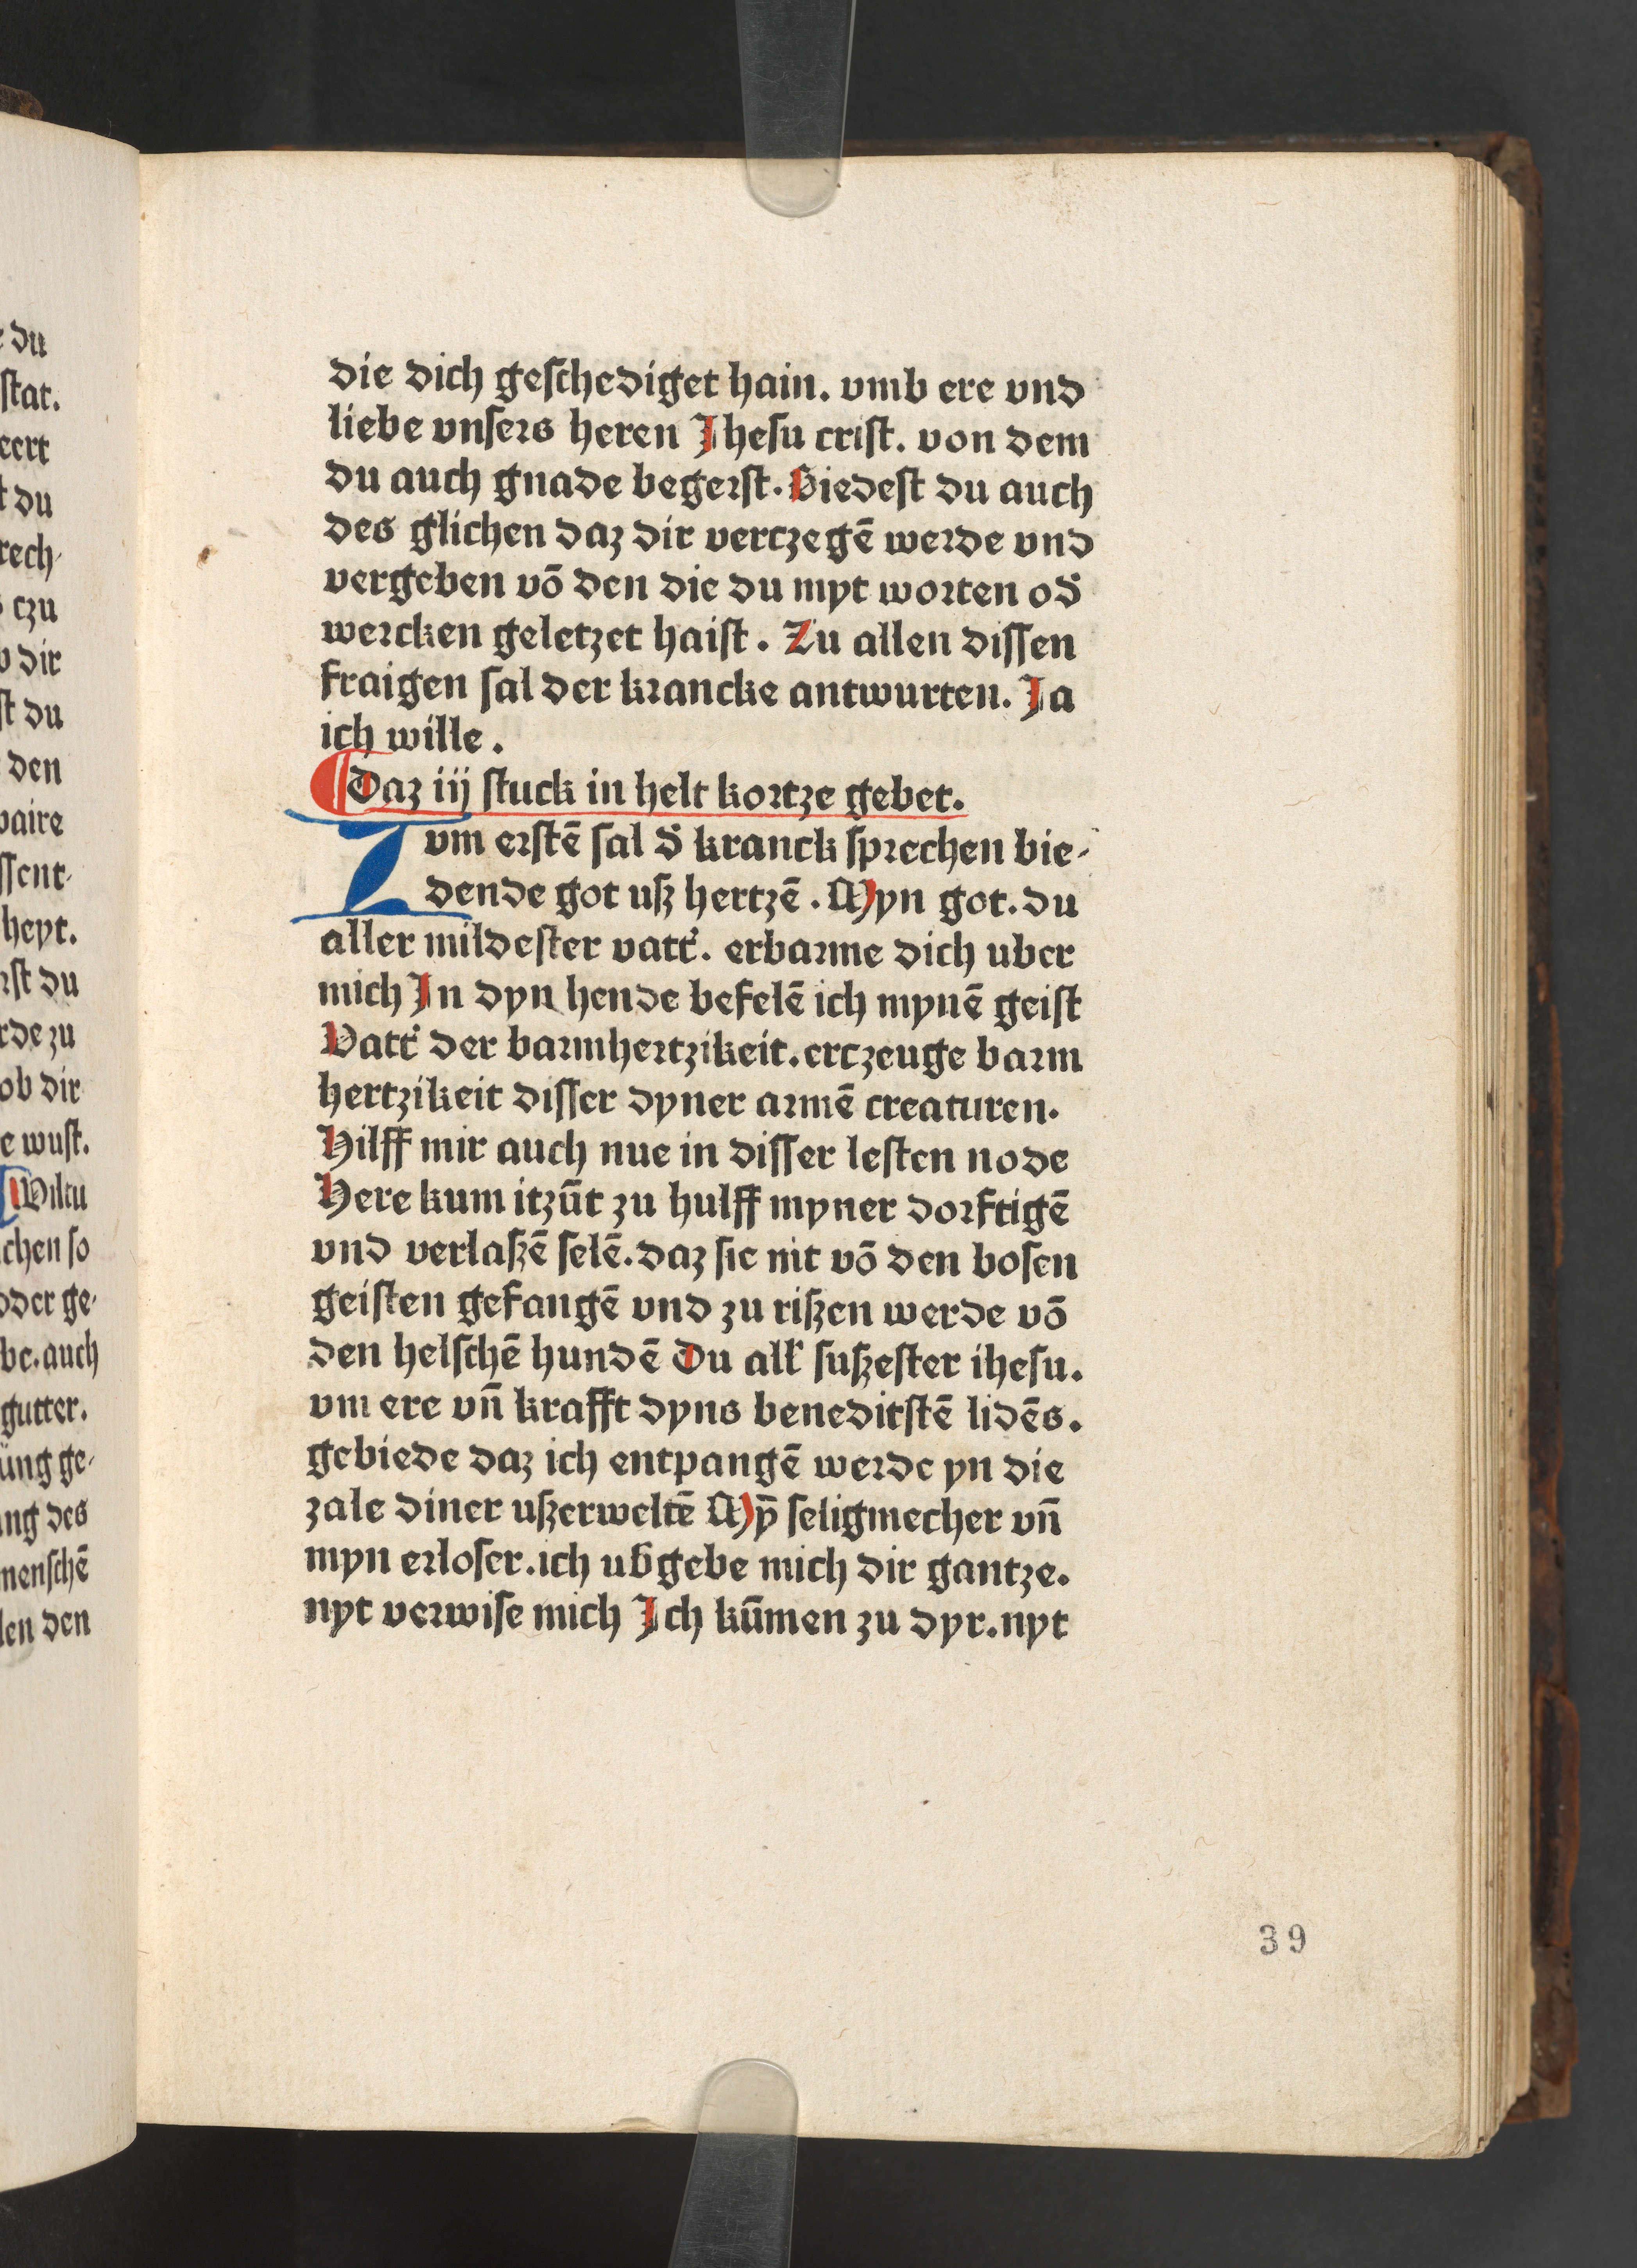 die dich geschediget hain. vmb ere vnd
liebe vnsers heren Jhesu crist. von dem
du auch gnade begerst. Biedest du auch
des glichen daz dir vertzegē werde vnd
vergeben vō den die du myt worten od̄
wercken geletzet haist. Zu allen dissen
fraigen sal der krancke antwurten. Ja
ich wille.
¶ Daz iij stuck in helt kortze gebet.
Zum erstē sal d̄ kranck sprechen bie-
dende got uß hertzē. Myn got. du
aller mildester vatt͛. erbarme dich uber
mich In dyn hende befelē ich mynē geist
Vatt͛ der barmhertzikeit. ertzeuge barm
hertzikeit disser dyner armē creaturen.
Hilff mir auch nue in disser lesten node
Here kum itzūt zu hulff myner dorftigē
vnd verlaßē selē. daz sie nit vō den bosen
geisten gefangē vnd zu rißen werde vō
den helschē hundē Du all͛ sußester ihesu.
vm ere vn̄ krafft dyns beneditstē lidēs.
gebiede daz ich entpangē werde yn die
zale diner ußerweltē Mȳ seligmecher vn̄
myn erloser. ich ub͛gebe mich dir gantze.
nyt verwise mich Ich kūmen zu dyr. nyt
39
e du
stat.
eert
t du
rech-
czu
b dir
st du
den
paire
ssent-
heyt.
rst du
rde zu
ob dir
e wust.
Wiltu
chen so
oder ge-
be. auch
gutter.
üng ge-
ng des
menschē
len den